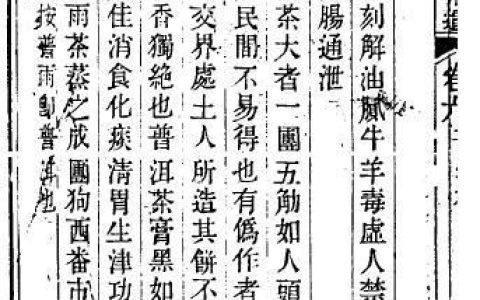 遺 卷六
刻解油膩牛羊毒虛人禁
腸通泄
茶大者一團五觔如人頭
民間不易得也有僞作者
交界處土人所造其餅不
香獨絕也普洱茶膏黑如
佳消食化痰清胃生津功
雨茶蒸之成團狗西番市
按普雨卽普洱也